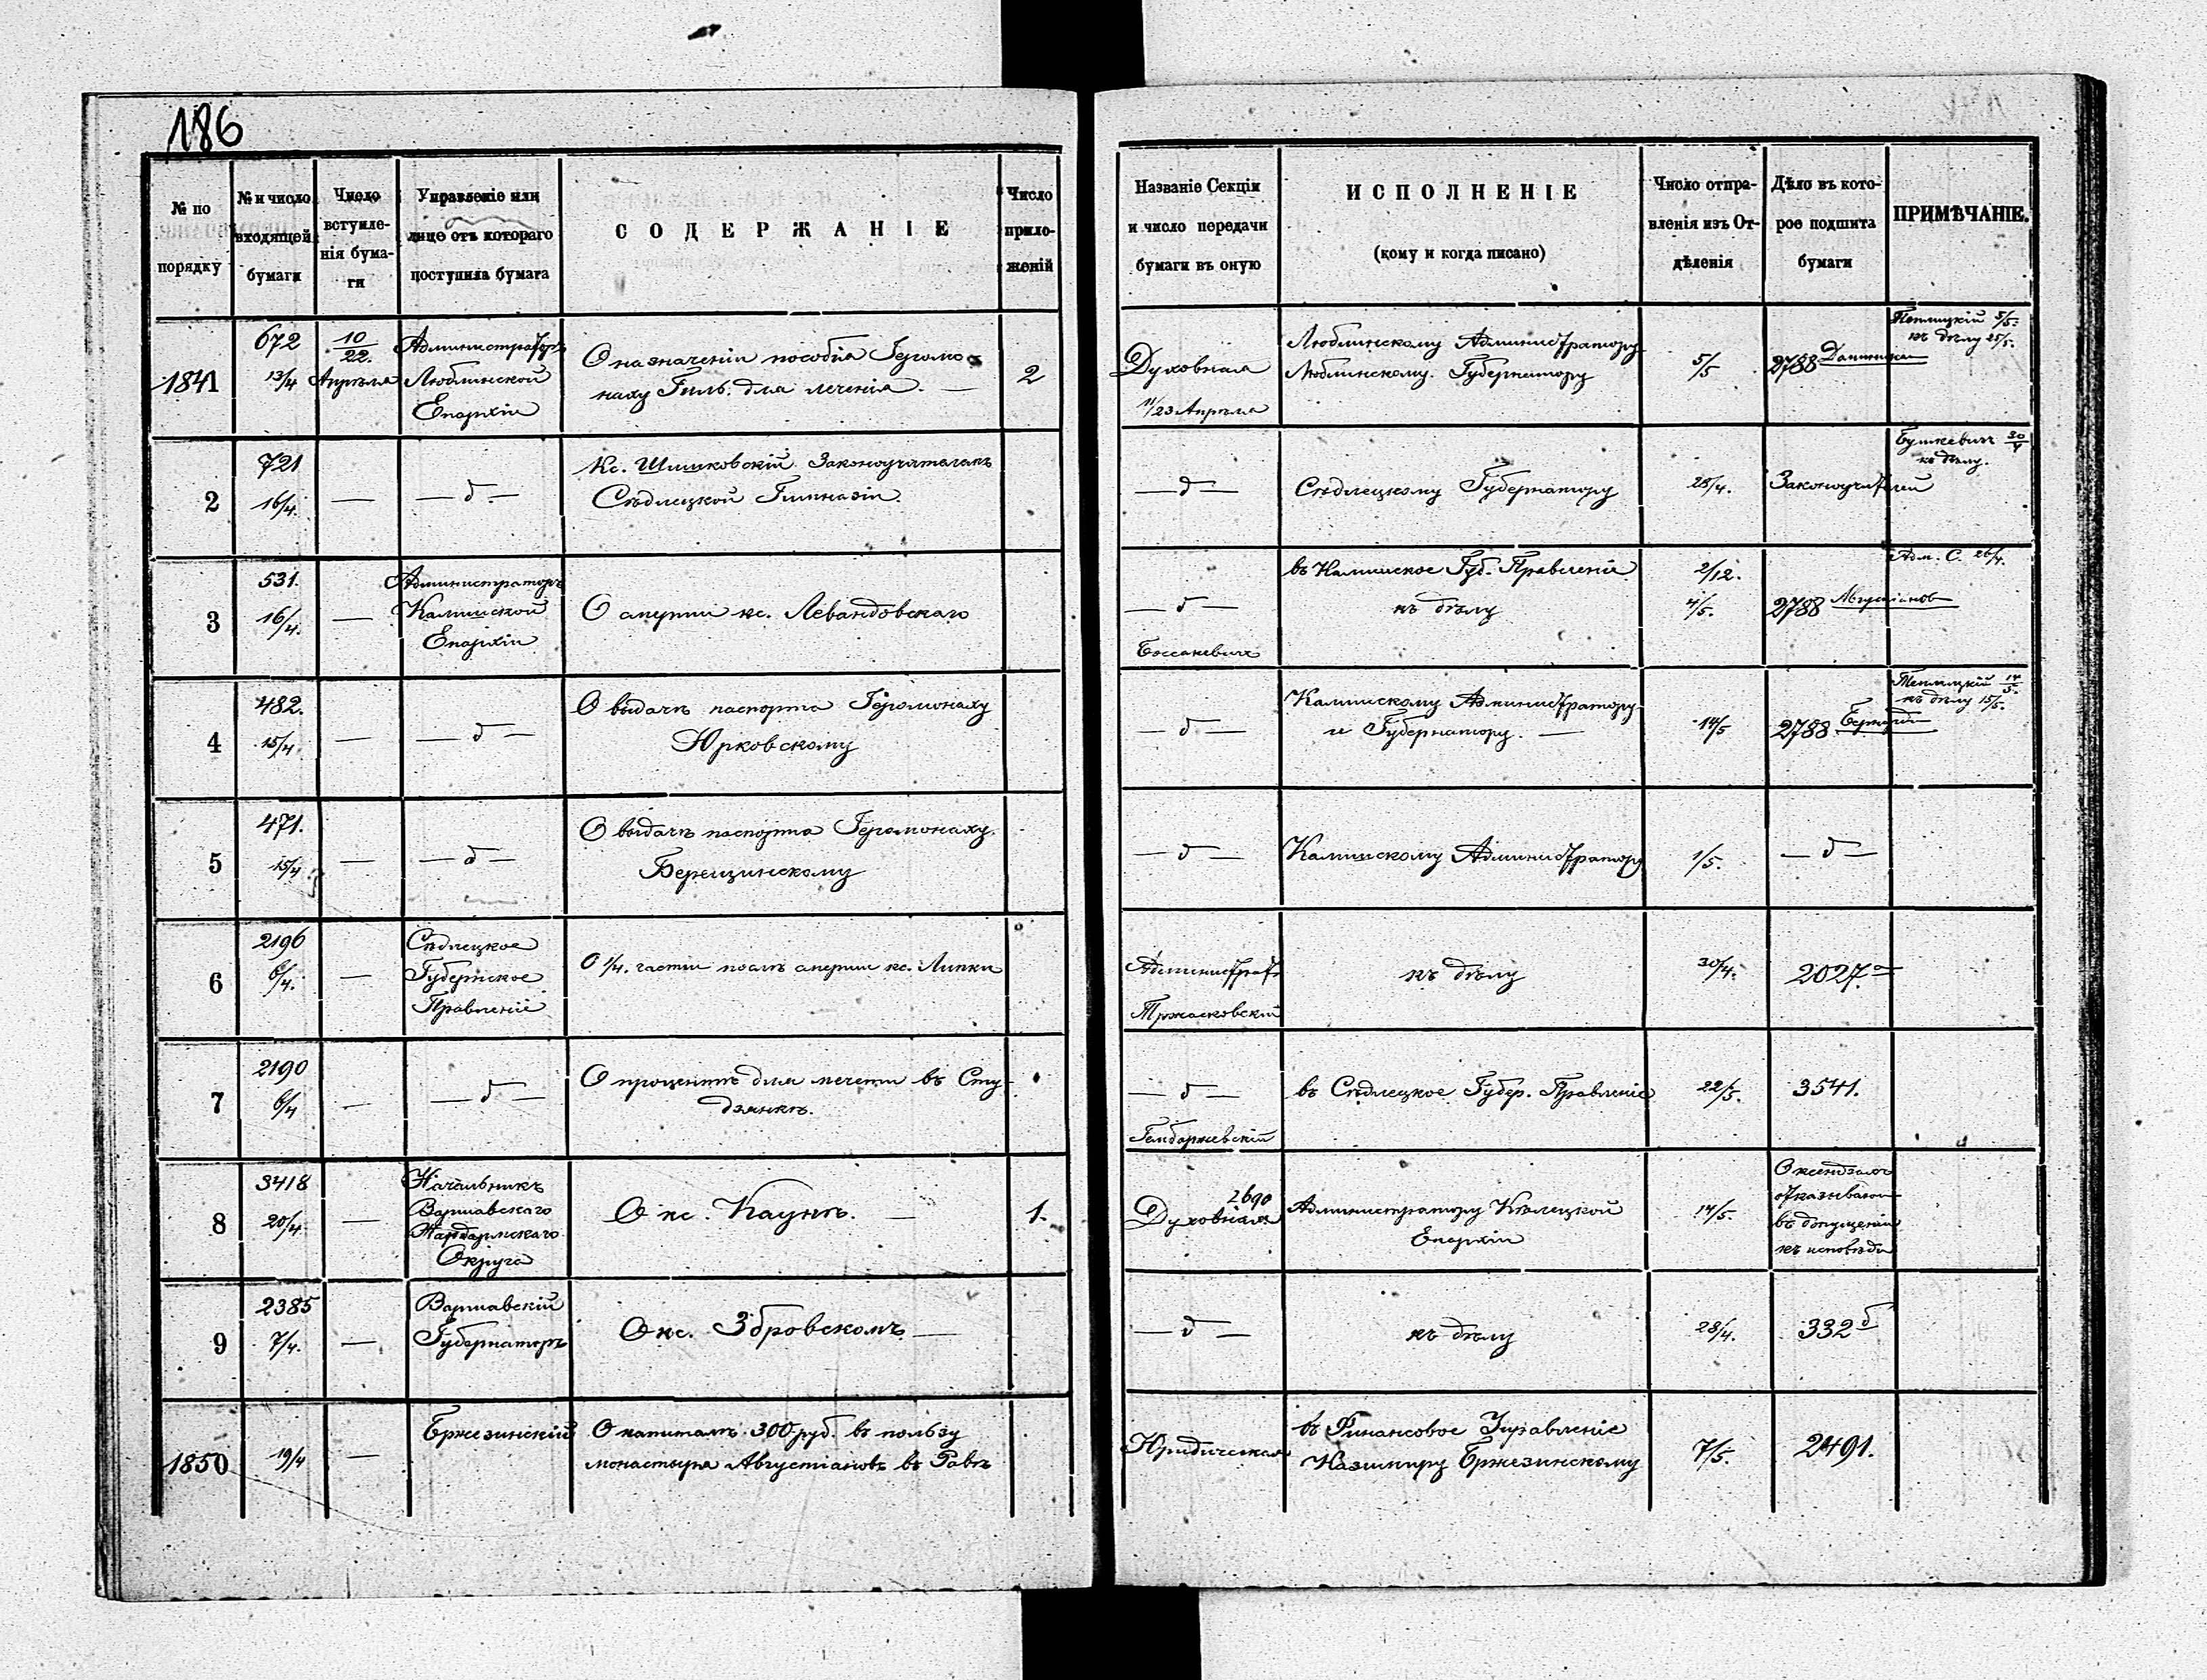 186
№ по порядку
№ и число входящей бумаги
Число вступле-нія бума-ги
Управленіе или лице отъ котораго поступила бумага
СОДЕРЖАНІЕ
Число прило-женій
Названіе Секціи и число передачи бумаги въ оную
ИСПОЛНЕНІЕ
(кому и когда писано)
Число отпра-вленія изъ От-дѣленія
Дѣло въ кото-рое подшита бумаги
ПРИМѢЧАНІЕ.
1841
672
13/4
10/22.
Апрѣля
Администраторъ
Люблинской
Епархіи
О назначеніи пособія Іеромо-
наху Гиль. для леченія. —
2
Духовная
11/23 Апрѣля
Люблинскому Администратору
Люблинскому Губернатору
5/5
2788
5/5.
къ дѣлу 25/5.
2
721
16/4.
—
— д —
Кс. Шишковскій Законоучителемъ
Сѣдлецкой Гимназіи
— д —
Сѣдлецкому Губернатору
28/4.
Законоучителей
Бушкевичъ 30/4
къ дѣлу.
3
531.
16/4.
—
Администраторъ
Калишской
Епархіи
О смерти кс. Левандовскаго
— д —
въ Калишское Губ. Правленіе
къ дѣлу
2/12.
4/5.
2788 Августіановъ
Адм. С. 26/4.
4
482.
15/4
—
— д —
О выдачѣ паспорта Іеромонаху
Юрковскому
— д —
Калишскому Администратору
и Губернатору. —
14/5
2788
14/5.
къ дѣлу 15/5.
5
471.
15/4
—
— д —
О выдачѣ паспорта Іеромонаху
Берещинскому
— д —
Калишскому Администратору
1/5.
— д —
6
2196
6/4.
—
Сѣдлецкое
Губернское
Правленіе
О 1/4. части послѣ смерти кс. Липки
Администрат.
Тржасковскій
къ дѣлу
30/4.
2027.
7
2190
6/4
—
— д —
О процентѣ для мечети въ Сту-
дзянкѣ.
— д —
въ Сѣдлецкое Губер. Правленіе
22/5.
3541.
8
3418
20/4
—
Начальникъ
Варшавскаго
Жандармскаго
Округа
О кс. Каунѣ. —
1.
2690
Духовная
Администратору Кѣлецкой
Епархіи
14/5.
О ксендзахъ
отказывающ
въ допущеніи
къ исповѣди
9
2385
7/4.
—
Варшавскій
Губернаторъ
О кс. Збровскомъ —
— д —
къ дѣлу
28/4.
332 б
1850
19/4
—
Бржезинскій
О капиталѣ 300 руб. въ пользу
монастыря Августіановъ въ Равѣ
Юридическая
въ Финансовое Управленіе
Казимиру Бржезинскому
7/5.
2491.